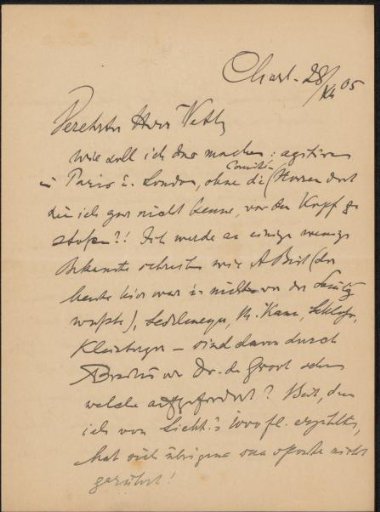 Charl. 28/XI 05
Verehrter Herr Veth,
Wie soll ich das machen: agitiren
in Paris u. London, ohne die Comité
Herren dort
die ich gar nicht kenne, vor den Kopf zu
stoßen?! Ich werde an einige wenige
Bekannte schreiben wie A Beit (der
heute hier war u. nichts von der
wusste), Sedelmeyer, M. Kann, Schloss,
Kleinberger – sind davon durch
Bredius od Dr. de Groot schon
welche aufgefordert? Beit, dem
ich von 1000 fl. erzählte,
hat sich übrigens nicht
gerührt!